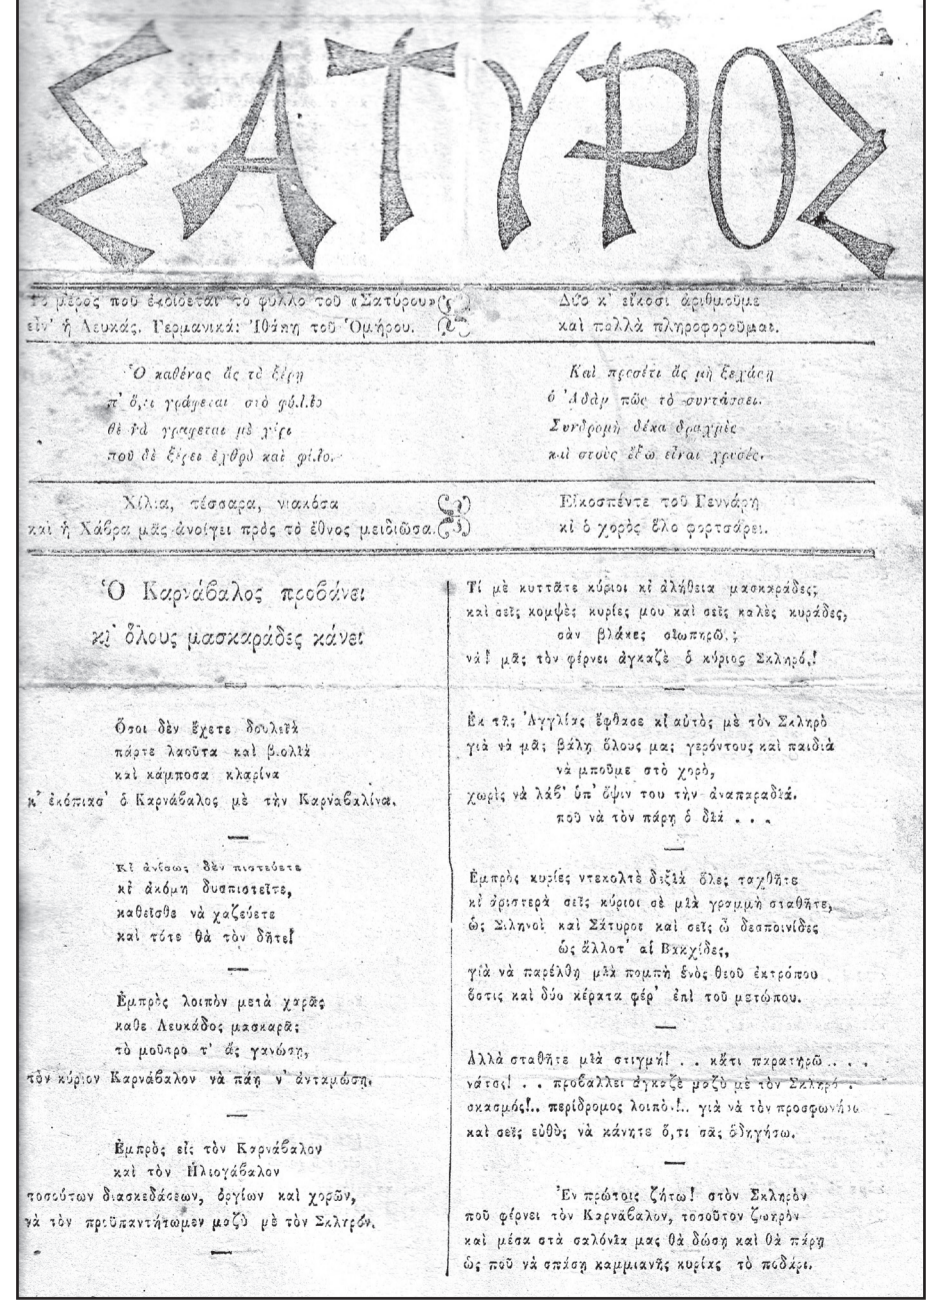 ΣΑΤΥΡΟΣ
Τὸ μέρος ποῦ ἐκδίδεται τὸ φύλλο τοῦ «Σατύρου»
εἶν' ἡ Λευκάς. Γερμανικά: Ἰθάκη τοῦ Ὁμήρου.
Δύο κ' εἴκοσι ἀριθμοῦμε
καὶ πολλὰ πληροφοροῦμαι.
Ὁ καθένας ἂς τὸ ξέρῃ
π' ὅ,τι γράφεται στὸ φύλλο
θὲ νὰ γράφεται μὲ χέρι
ποῦ δὲ ξέρει ἐχθρὸ καὶ φίλο.
Καὶ προσέτι ἂς μὴ ξεχάσῃ
ὁ Ἀδὰμ πῶς τὸ συντάσσει.
Συνδρομὴ δέκα δραχμὲς
καὶ στοὺς ἔξω εἶναι χρυσές.
Χίλια, τέσσαρα, νιακόσα
καὶ ἡ Χάβρα μᾶς ἀνοίγει πρὸς τὸ ἔθνος μειδιῶσα.
Εἰκοσπέντε τοῦ Γεννάρη
κι ὁ χορὸς ὅλο φορτσάρει.
Ὁ Καρνάβαλος προβάνει
κι' ὅλους μασκαράδες κάνει
Ὅσοι δὲν ἔχετε δουλειὰ
πάρτε λαοῦτα καὶ βιολιὰ
καὶ κάμποσα κλαρίνα
κ' ἐκόπιασ' ὁ Καρνάβαλος μὲ τὴν Καρναβαλίνα.
Κι ἀνίσως δὲν πιστεύετε
κι ἀκόμη δυσπιστεῖτε,
καθεῖσθε νὰ χαζεύετε
καὶ τότε θὰ τὸν δῆτε!
Ἐμπρὸς λοιπὸν μετὰ χαρᾶς
καθε Λευκάδος μασκαρᾶς
τὸ μοῦτρο τ' ἂς γανώσῃ,
τὸν κύριον Καρνάβαλον νὰ πάῃ ν' ἀνταμώσῃ.
Ἐμπρὸς εἰς τὸν Καρνάβαλον
καὶ τὸν Ἡλιογάβαλον
τοσούτων διασκεδάσεων, ὀργίων καὶ χορῶν,
νὰ τὸν προϋπαντήσωμεν μαζὺ μὲ τὸν Σκληρόν.
Τί μὲ κυττᾶτε κύριοι κι ἀλήθεια μασκαράδες;
καὶ σεῖς κομψὲς κυρίες μου καὶ σεῖς καλὲς κυράδες,
σὰν βλάκες σιωπηροί;
νά! μᾶς τὸν φέρνει ἀγκαζὲ ὁ κύριος Σκληρός!
Ἐκ τῆς Ἀγγλίας ἔφθασε κι αὐτὸς μὲ τὸν Σκληρὸ
γιὰ νὰ μᾶς βάλῃ ὅλους μας γερόντους καὶ παιδιὰ
νὰ μποῦμε στὸ χορό,
χωρὶς νὰ λάβ' ὑπ' ὄψιν του τὴν ἀναπαραδιά.
ποῦ νὰ τὸν πάρη ὁ διά . . .
Ἐμπρὸς κυρίες ντεκολτὲ δεξιὰ ὅλες ταχθῆτε
κι ἀριστερὰ σεῖς κύριοι σὲ μιὰ γραμμὴ σταθῆτε,
ὡς Σιληνοὶ καὶ Σάτυροι καὶ σεῖς ὦ δεσποινίδες
ὡς ἄλλοτ' αἱ Βακχίδες,
γιὰ νὰ παρέλθῃ μιὰ πομπὴ ἑνὸς θεοῦ ἐκτρόπου
ὅστις καὶ δύο κέρατα φέρ' ἐπὶ τοῦ μετώπου.
Ἀλλὰ σταθῆτε μιὰ στιγμή! . . κἄτι παρατηρῶ . . . .
νάτος! . . προβάλλει ἀγκαζὲ μαζὺ μὲ τὸν Σκληρό .
σκασμός!.. περίδρομος λοιπόν!.. γιὰ νὰ τὸν προσφωνήσω
καὶ σεῖς εὐθὺς νὰ κάνητε ὅ,τι σᾶς ὁδηγήσω.
Ἐν πρώτοις ζήτω! στὸν Σκληρὸν
ποῦ φέρνει τὸν Καρνάβαλον, τοσοῦτον ζωηρὸν
καὶ μέσα στὰ σαλόνια μας θὰ δώσῃ καὶ θὰ πάρῃ
ὡς ποῦ νὰ σπάσῃ καμμιανῆς κυρίας τὸ ποδάρι.